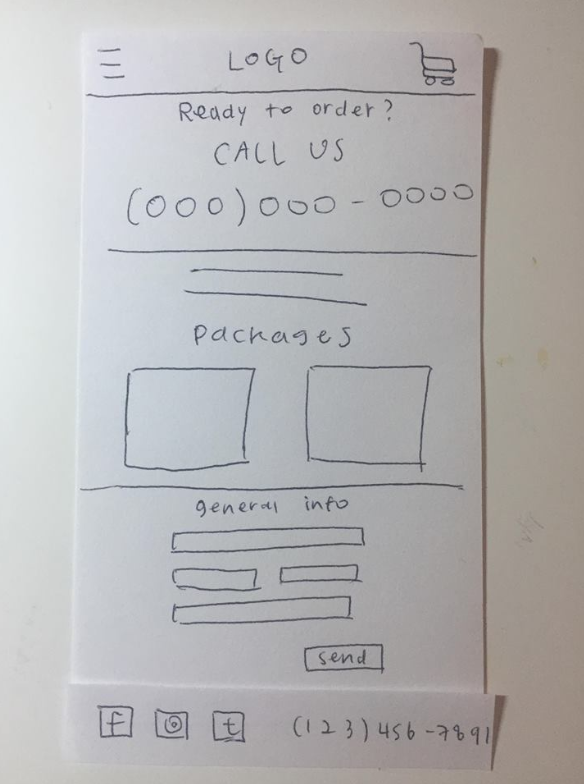 LOGO
Ready to order?
CALL US
(000) 000-0000
packages
general info
send
f t (123) 456-7891